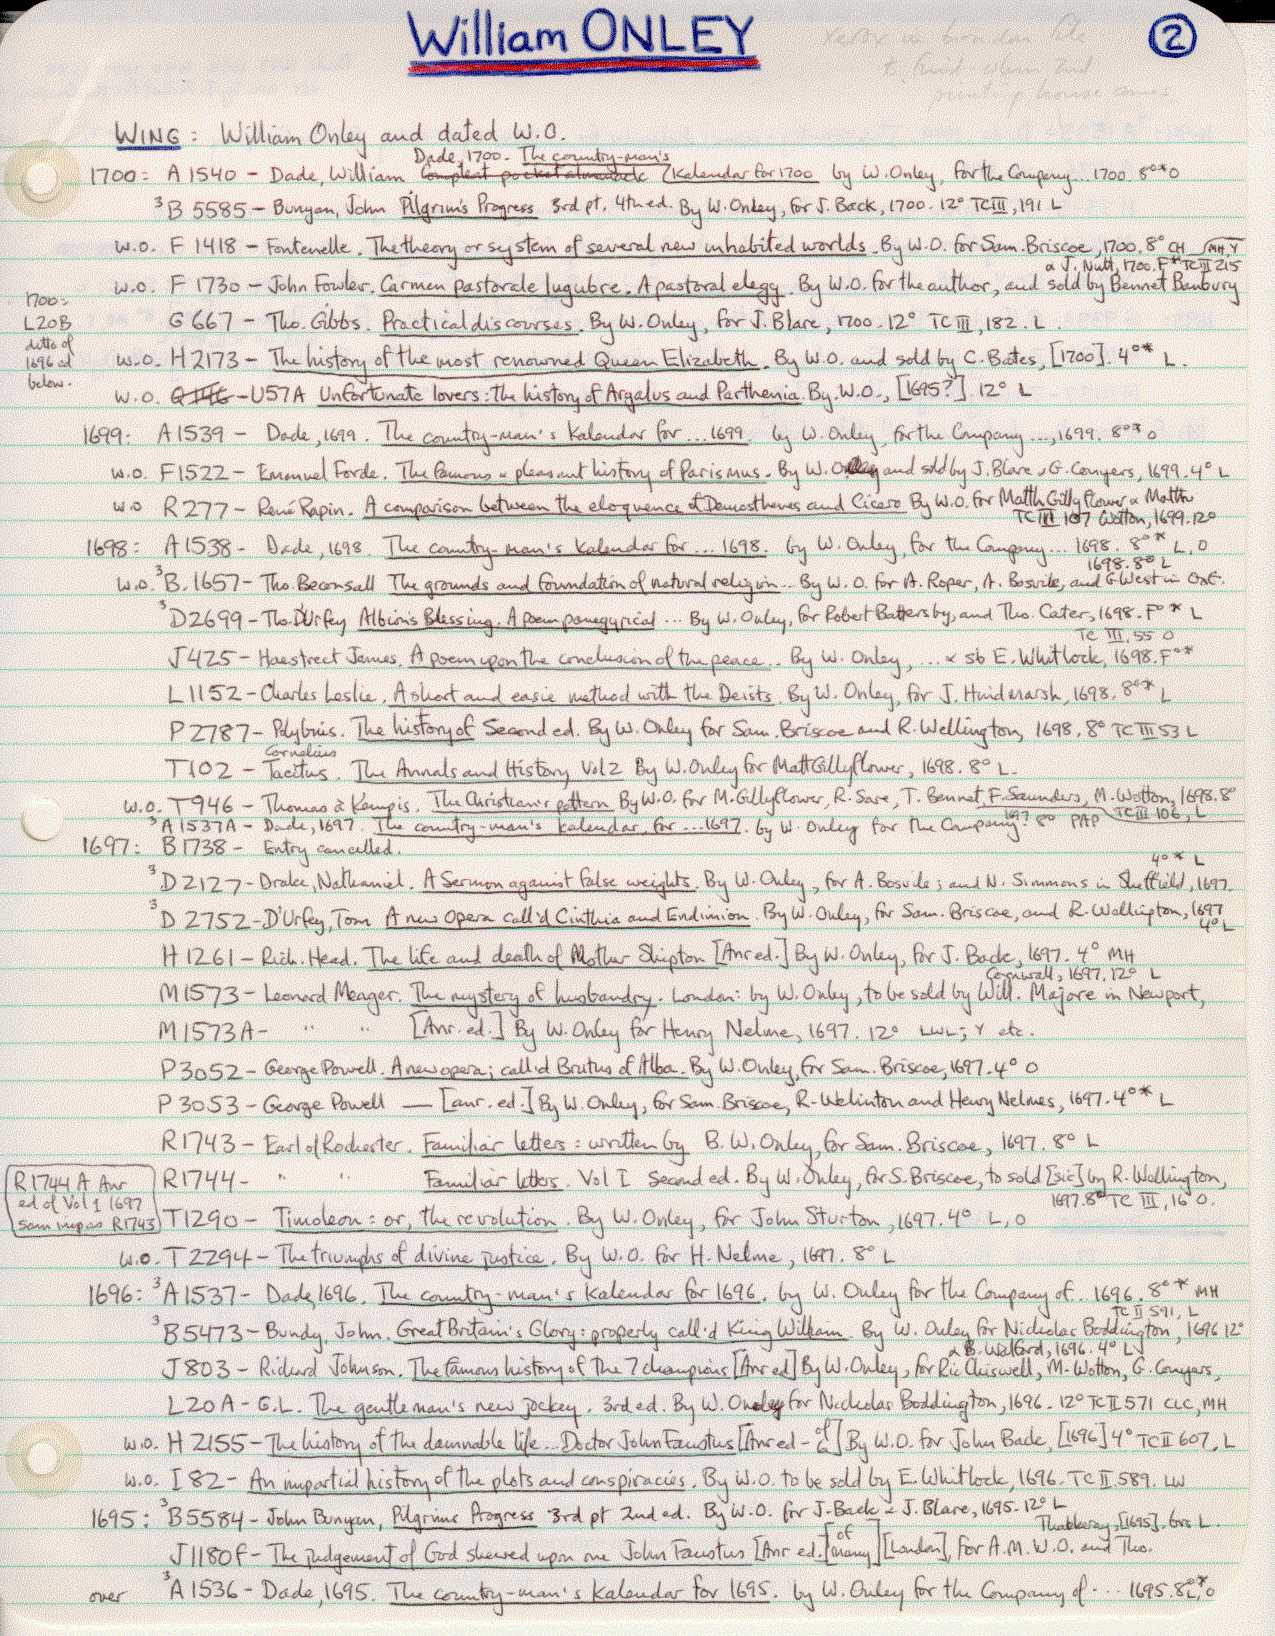 William ONLEY
2
Xerox in
to find when and
printing house
WING: William Onley and dated W.O.
Dade, 1700. The country-man's
1700: A1540 - Dade, William Compleat pocket almanack Kalendar for 1700 by W. Onley, for the Company... 1700. 8°* O
³B 5585 - Bunyan, John Pilgrim's Progress 3rd pt, 4th ed. By W. Onley, for J. Back, 1700. 12° TC III, 191 L
W.O. F 1418 - Fontenelle. The theory or system of several new inhabited worlds. By W.O. for Sam. Briscoe, 1700. 8° CH, MH, Y
& J. Nutt, 1700. F° TC III 215
W.O. F 1730 - John Fowler. Carmen pastorale lugubre. A pastoral elegy. By W.O. for the author, and sold by Bennet Banbury
1700:
L20B
ditto of
1696 ed
below.
G 667 - Tho. Gibbs. Practical discourses. By W. Onley, for J. Blare, 1700. 12° TC III, 182. L.
W.O. H2173 - The history of the most renowned Queen Elizabeth. By W.O. and sold by C. Bates, [1700]. 4°* L.
W.O. Q14G - U57A Unfortunate lovers: the history of Argalus and Parthenia. By W.O., [1695?] 12° L
1699: A1539 - Dade, 1699. The country-man's Kalendar for ... 1699. by W. Onley, for the Company ..., 1699. 8°* O
W.O. F1522 - Emanuel Forde. The famous & pleasant history of Parismus. By W. Onley and sold by J. Blare & G. Conyers, 1699. 4° L
W.O R277 - René Rapin. A comparison between the eloquence of Demosthenes and Cicero By W.O. for Matth Gillyflower & Matth
TC III 107 Wotton, 1699. 12°
1698: A1538 - Dade, 1698. The country-man's Kalendar for ... 1698. by W. Onley, for the Company ... 1698. 8°* L, O
1698. 8° L
W.O. ³B.1657 - Tho. Beconsall The grounds and foundation of natural religion... By W.O. for A. Roper, A. Bosvile, and G. West in Oxf.
³D2699 - Tho. D'Urfey Albion's Blessing. A poem panegyrical ... By W. Onley, for Robert Battersby, and Tho. Cater, 1698. F°* L
TC III, 55 O
J425 - Haestrect James. A poem upon the conclusion of the peace.. By W. Onley, ... & sb E. Whitlock, 1698. F°*
L1152 - Charles Leslie. A short and easie method with the Deists. By W. Onley, for J. Hindmarsh, 1698. 8°* L
P2787 - Polybius. The history of Second ed. By W. Onley for Sam. Briscoe and R. Wellington, 1698. 8° TC III 53 L
Cornelius
T102 - Tacitus. The Annals and History, Vol 2 By W. Onley for Matt Gillyflower, 1698. 8° L.
W.O. T946 - Thomas à Kempis. The Christian's pattern By W.O. for M. Gillyflower, R. Sare, T. Bennet, F. Saunders, M. Wotton, 1698. 8°
TC III 106, L
³A1537A - Dade, 1697. The country-man's kalendar for ... 1697. by W. Onley for the Company 1697 8° PAP
1697: B1738 - Entry cancelled.
4°* L
³D2127 - Drake, Nathaniel. A Sermon against false weights. By W. Onley, for A. Bosvile; and N. Simmons in Sheffield, 1697.
³D 2752 - D'Urfey, Tom A new Opera call'd Cinthia and Endimion. By W. Onley, for Sam. Briscoe, and R. Wellington, 1697
4° L
H1261 - Rich. Head. The life and death of Mother Shipton [Anr ed.] By W. Onley, for J. Back, 1697. 4° MH
Cornwall, 1697. 12° L
M1573 - Leonard Meager. The mystery of husbandry. London: by W. Onley, to be sold by Will. Majore in Newport,
M1573A - " " [Anr. ed.] By W. Onley for Henry Nelme, 1697. 12° LWL; Y etc.
P3052 - George Powell. A new opera; call'd Brutus of Alba. By W. Onley, for Sam. Briscoe, 1697. 4° O
P3053 - George Powell — [anr. ed.] By W. Onley, for Sam. Briscoe, R. Welinton and Henry Nelmes, 1697. 4°* L
R1743 - Earl of Rochester. Familiar letters: written by B. W. Onley, for Sam. Briscoe, 1697. 8° L
R1744 A Anr
ed of Vol 1 1697
same imp as R1743
R1744 - " " Familiar letters. Vol I Second ed. By W. Onley, for S. Briscoe, to sold [sic] by R. Wellington,
1697. 8° TC III, 16 O.
T1290 - Timoleon: or, the revolution. By W. Onley, for John Sturton, 1697. 4° L, O
W.O. T2294 - The triumphs of divine justice. By W.O. for H. Nelme, 1697. 8° L
1696: ³A1537 - Dade, 1696. The country-man's Kalendar for 1696. by W. Onley for the Company of.. 1696. 8°* MH
TC II 591, L
³B5473 - Bundy, John. Great Britain's Glory: properly call'd King William. By W. Onley for Nicholas Boddington, 1696 12°
& B. Walford, 1696. 4° L
J803 - Richard Johnson. The famous history of the 7 champions [Anr ed] By W. Onley, for Ric Chiswell, M. Wotton, G. Conyers,
L20A - G.L. The gentleman's new jockey. 3rd ed. By W. Onley for Nicholas Boddington, 1696. 12° TC II 571 CLC, MH
W.O. H2155 - The history of the damnable life... Doctor John Faustus [Anr ed - of 6] By W.O. for John Back, [1696] 4° TC II 607, L
W.O. I82 - An impartial history of the plots and conspiracies. By W.O. to be sold by E. Whitlock, 1696. TC II 589. LW
1695: ³B5584 - John Bunyan, Pilgrims Progress 3rd pt 2nd ed. By W.O. for J. Back & J. Blare, 1695. 12° L
Thackeray, [1695]. brs L.
J1180f - The judgement of God shewed upon one John Faustus [Anr ed. of many] [London], for A.M. W.O. and Tho.
over ³A1536 - Dade, 1695. The country-man's Kalendar for 1695. by W. Onley for the Company of ... 1695. 8°* L, O